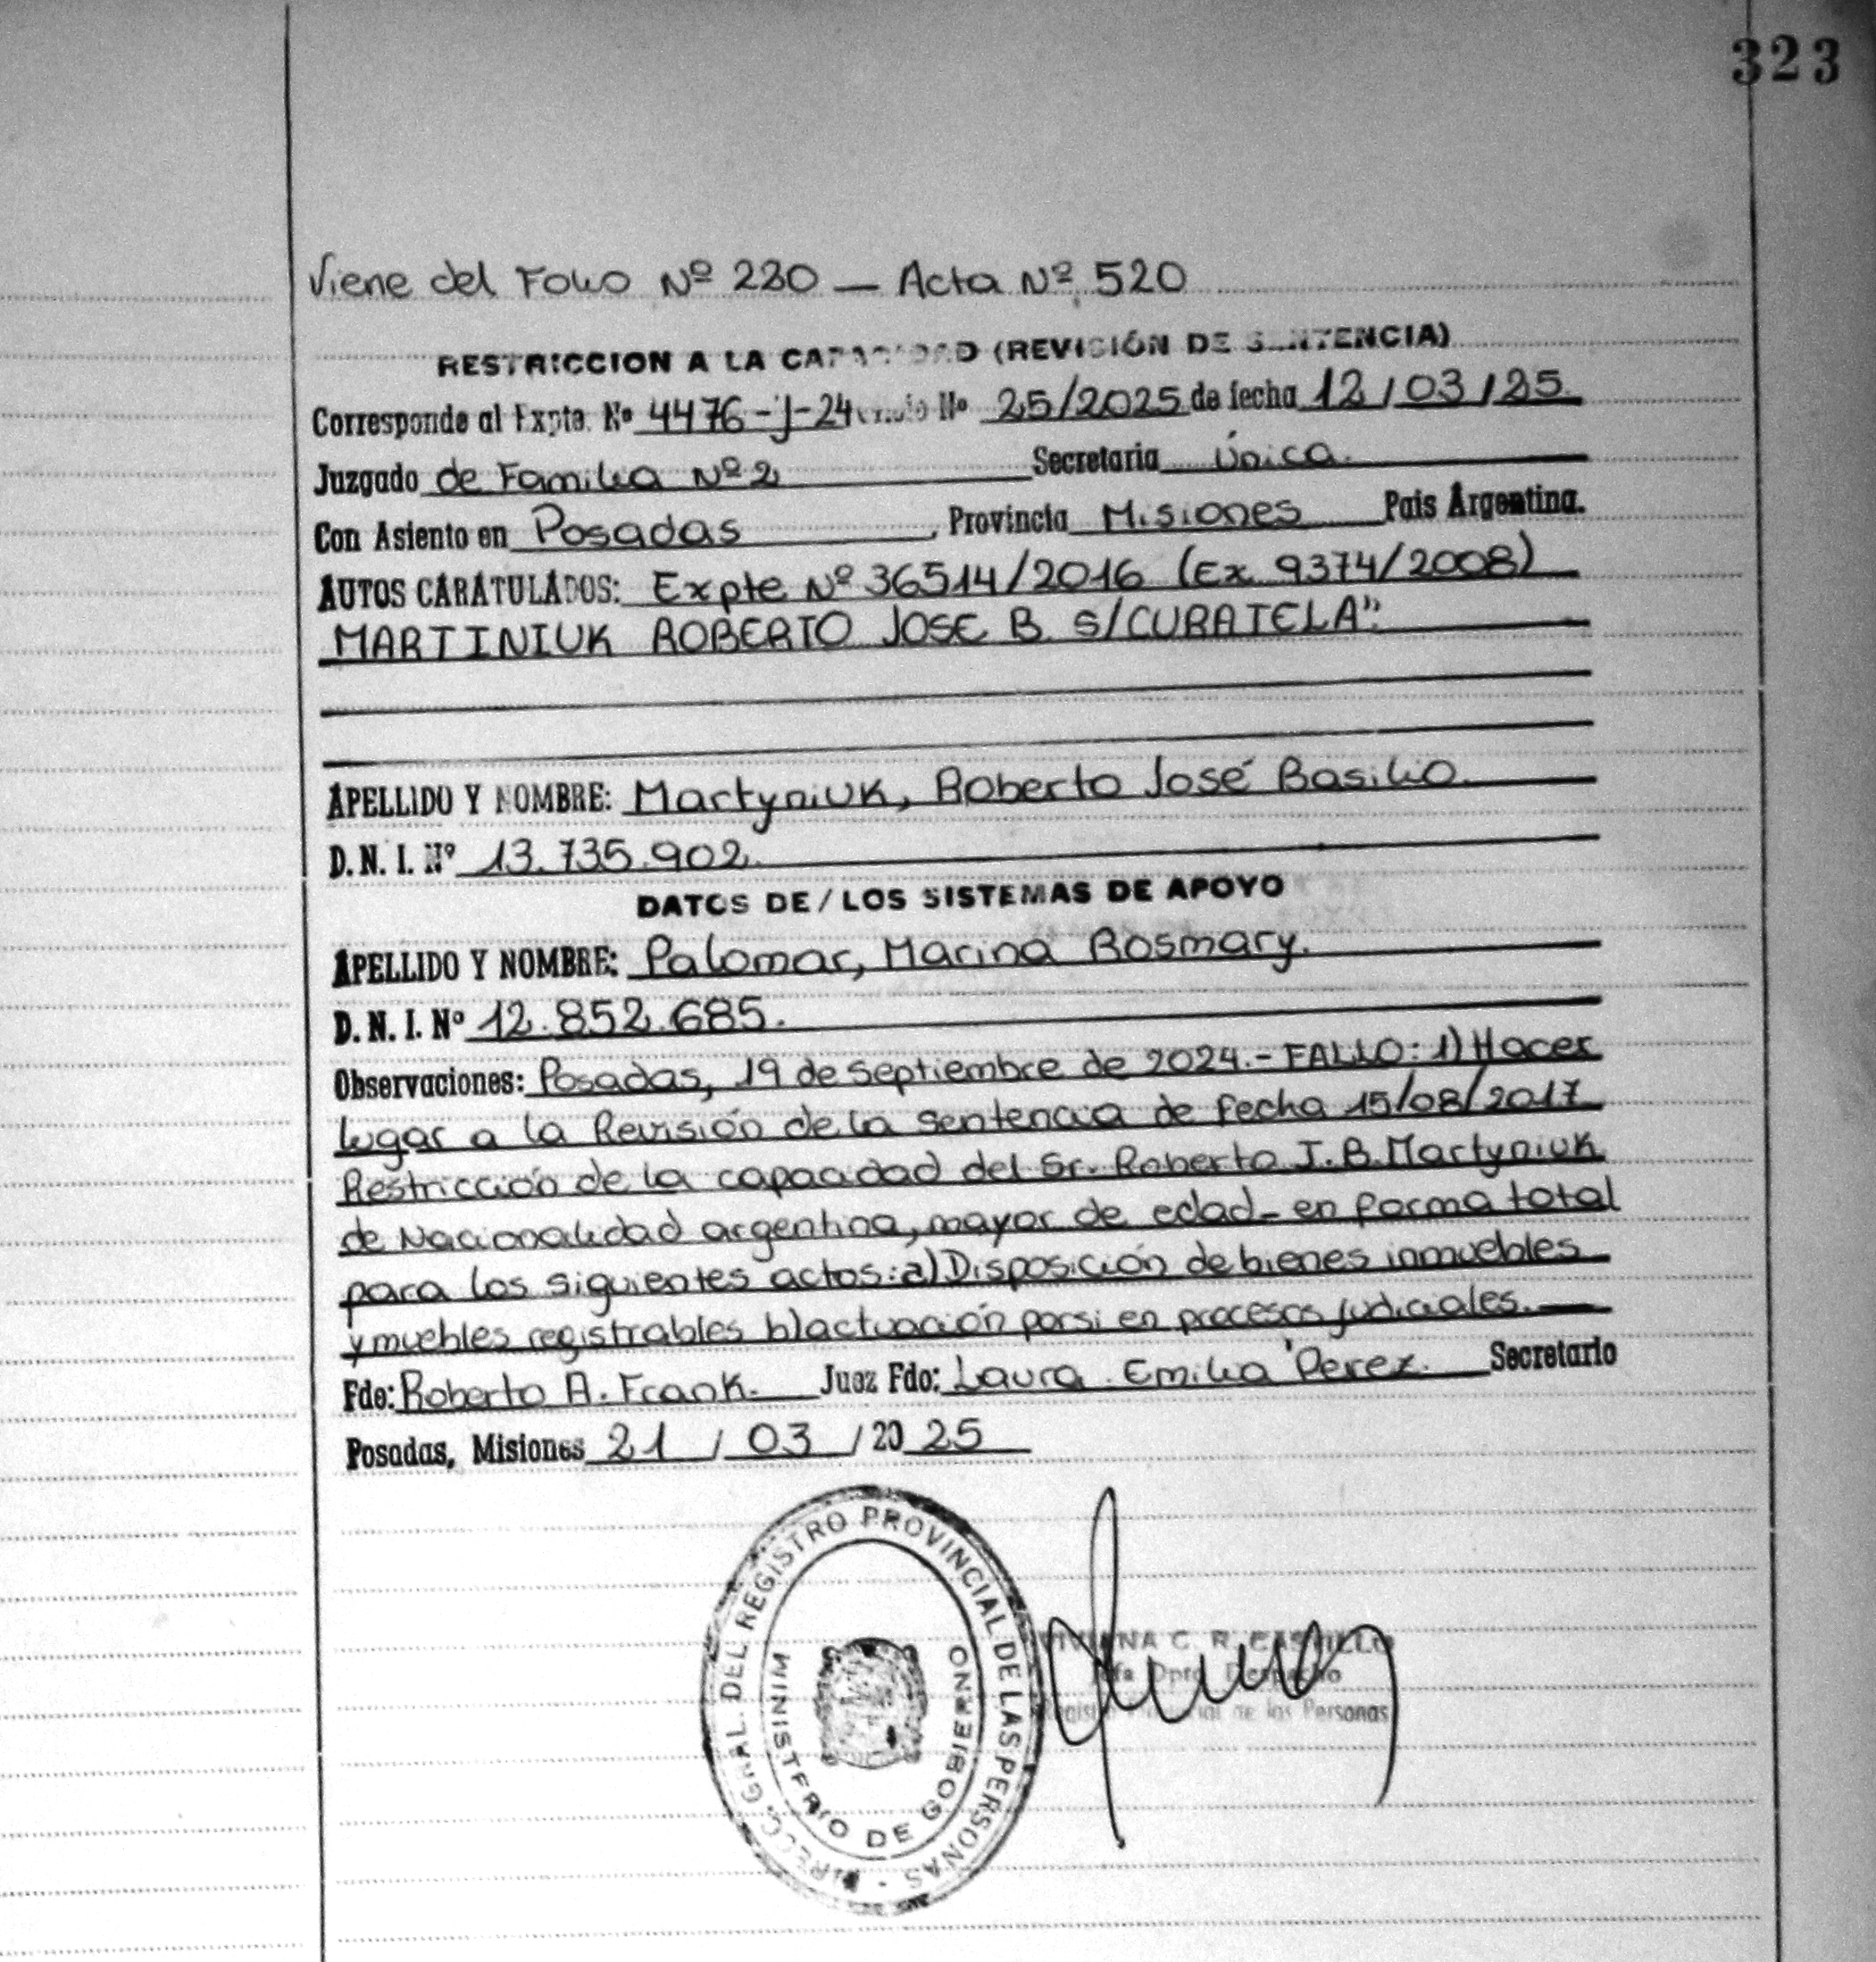 323
Viene del Folio Nº 230 — Acta Nº 520
RESTRICCION A LA CAPACIDAD (REVISIÓN DE SENTENCIA)
Corresponde al Expte. Nº 4476-J-24 Nº 25/2025 de fecha 12/03/25
Juzgado de Familia Nº 2 Secretaria Única.
Con Asiento en Posadas, Provincia Misiones Pais Argentina.
AUTOS CARATULADOS: Expte Nº 36514/2016 (Ex 9374/2008)
MARTINIUK ROBERTO JOSE B. S/CURATELA".
APELLIDO Y NOMBRE: Martyniuk, Roberto José Basilio.
D.N.I. Nº 13.735.902.
DATOS DE/LOS SISTEMAS DE APOYO
APELLIDO Y NOMBRE: Palomar, Marina Rosmary.
D.N.I. Nº 12.852.685.
Observaciones: Posadas, 19 de Septiembre de 2024.- FALLO: 1) Hacer
lugar a la Revisión de la sentencia de fecha 15/08/2017
Restricción de la capacidad del Sr. Roberto J.B. Martyniuk
de Nacionalidad argentina, mayor de edad- en forma total
para los siguientes actos: a) Disposición de bienes inmuebles
y muebles registrables b) actuación por si en procesos judiciales.
Fdo: Roberto A. Frank. Juez Fdo: Laura Emilia Perez. Secretario
Posadas, Misiones 21 / 03 / 20 25
DIRECC. GRAL. DEL REGISTRO PROVINCIAL DE LAS PERSONAS -
MINISTERIO DE GOBIERNO
VIVIANA C. R. CASTILLO
Jefa Dpto. Despacho
Registro Provincial de las Personas